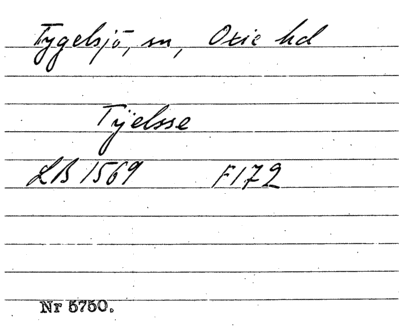 Tygelsjö, sn, Oxie hd
Tÿelsse
LB 1569 F172
Nr 5750.